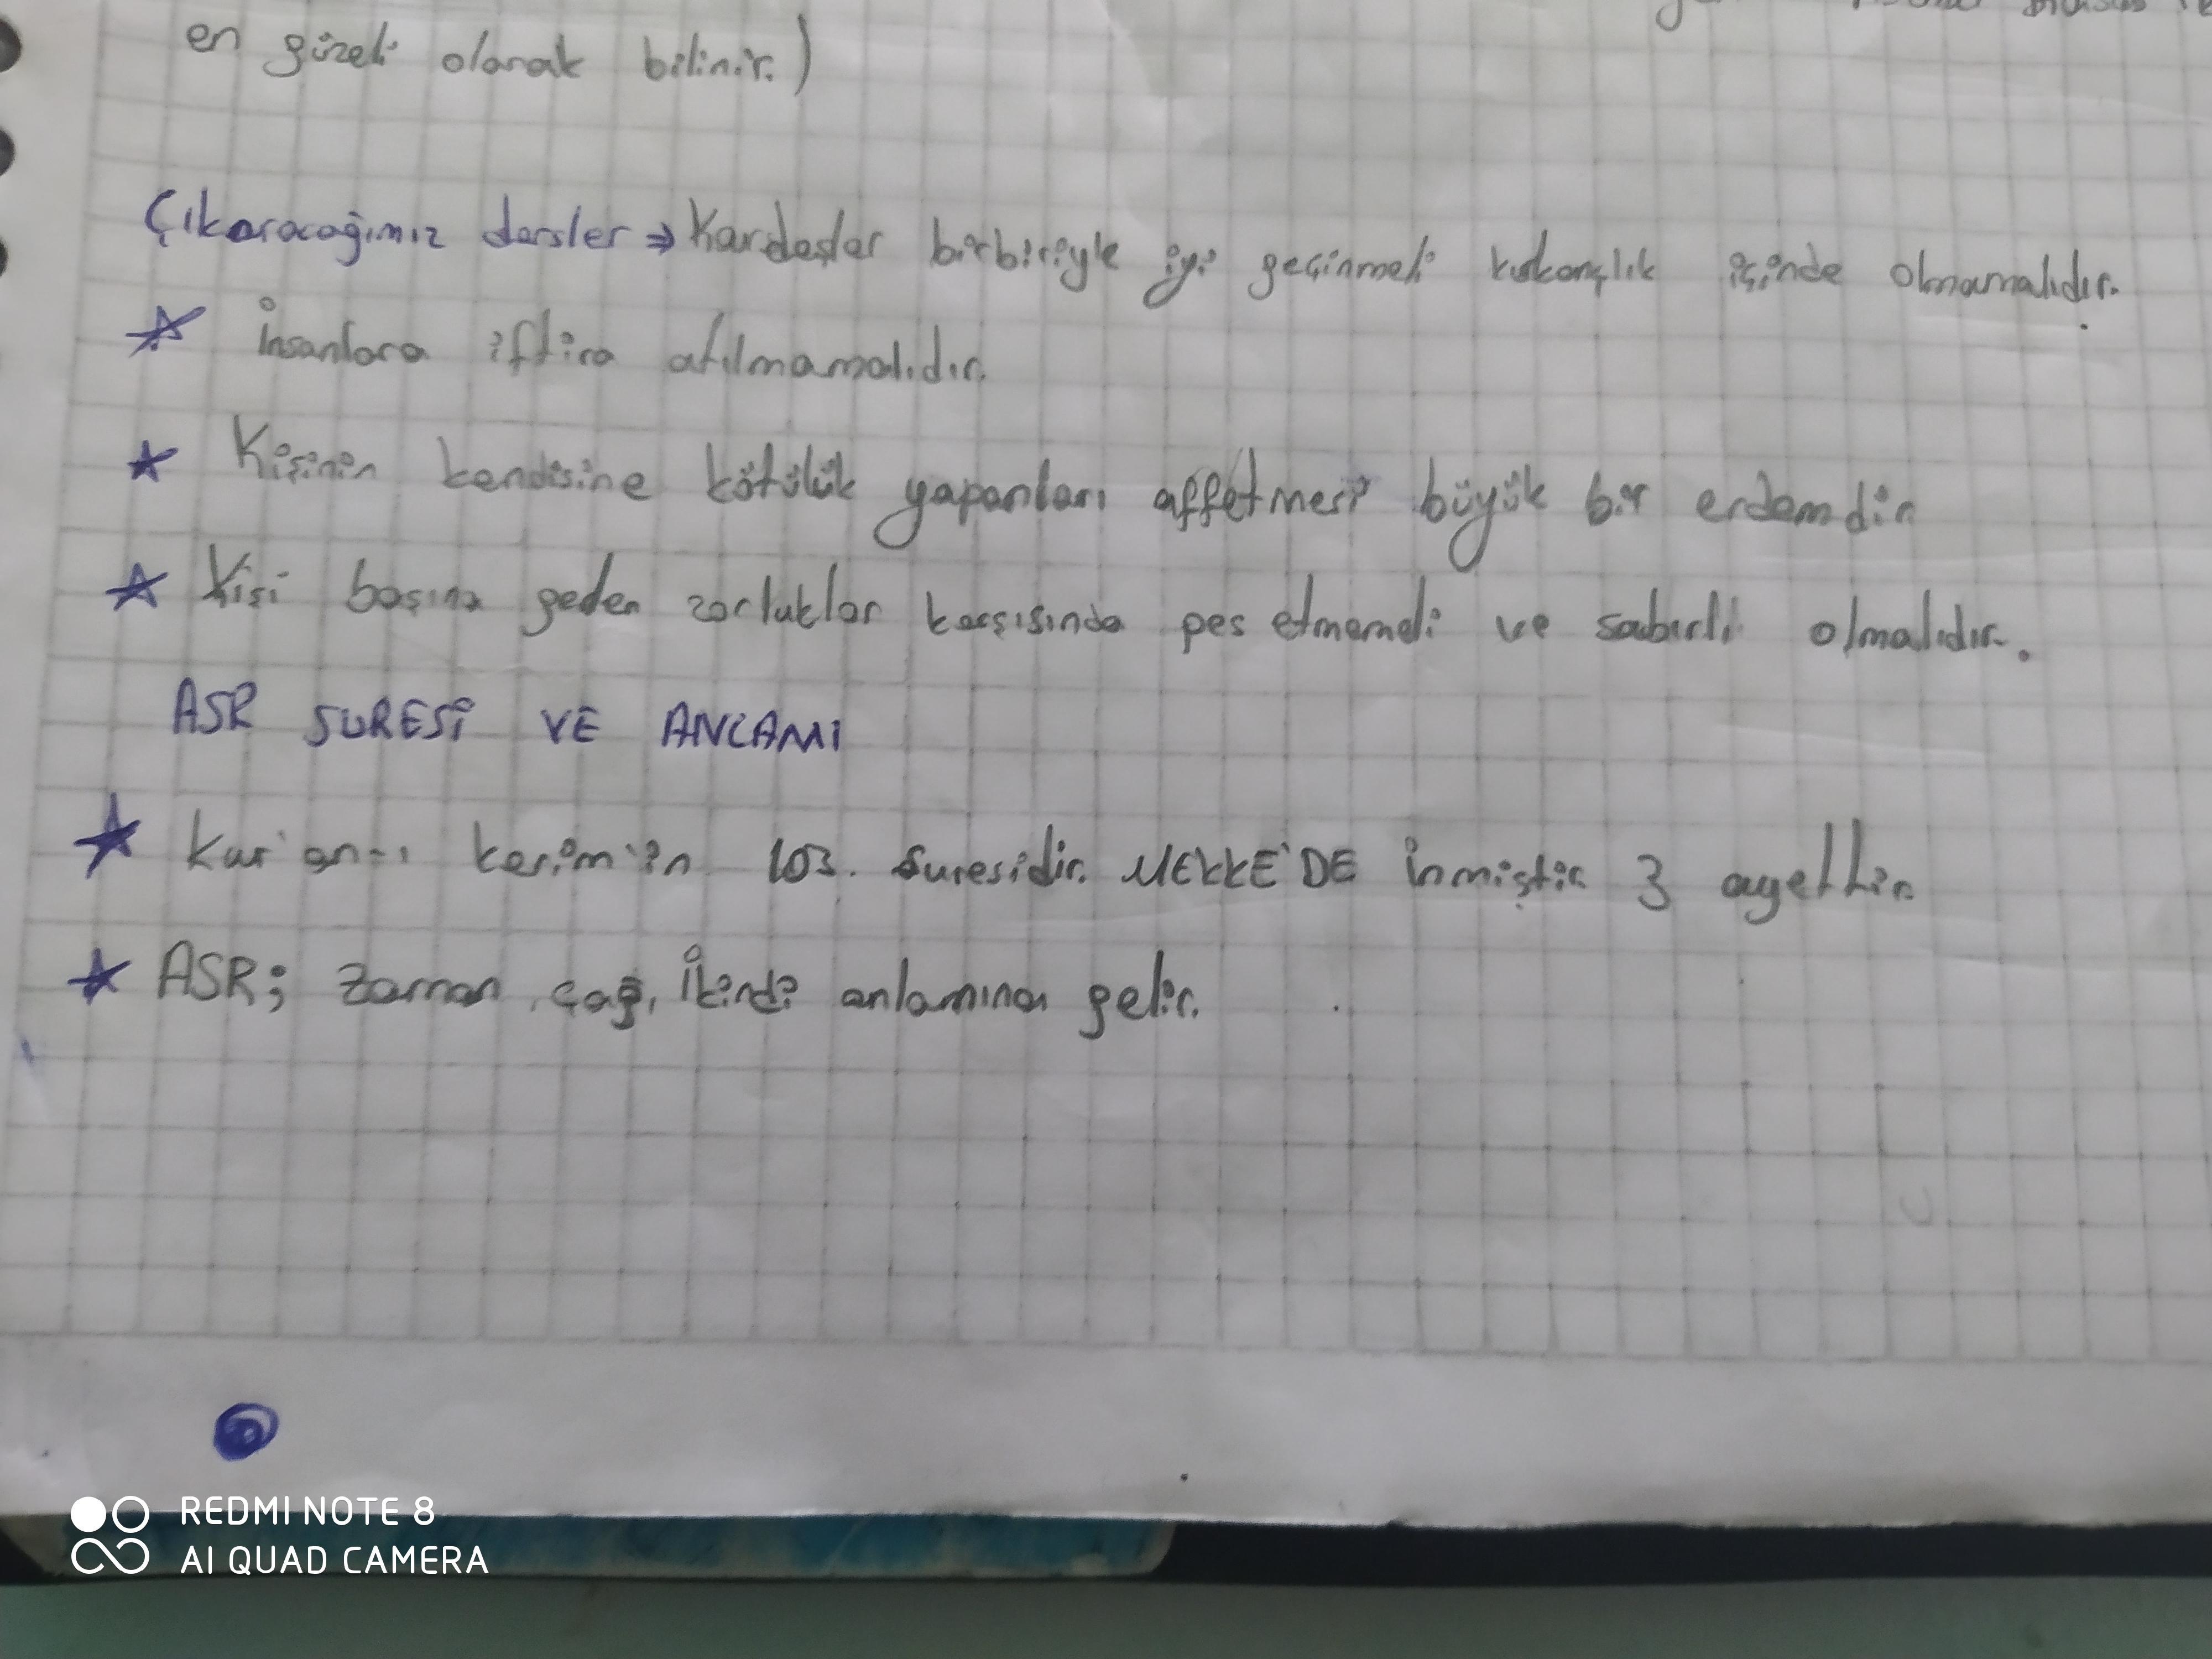 en güzeli olarak bilinir.)
Çıkaracağımız dersler ⇒ Kardeşler birbiriyle iyi geçinmeli kıskançlık içinde olmamalıdır.
☆ İnsanlara iftira atılmamalıdır.
☆ Kişinin kendisine kötülük yapanları affetmesi büyük bir erdemdir
☆ Kişi başına gelen zorluklar karşısında pes etmemeli ve sabırlı olmalıdır.
ASR SURESİ VE ANLAMI
☆ Kur'an-ı kerim'in 103. Suresidir. MEKKE'DE inmiştir 3 ayettir.
☆ ASR; zaman, çağ, İkindi anlamına gelir.
REDMI NOTE 8
AI QUAD CAMERA